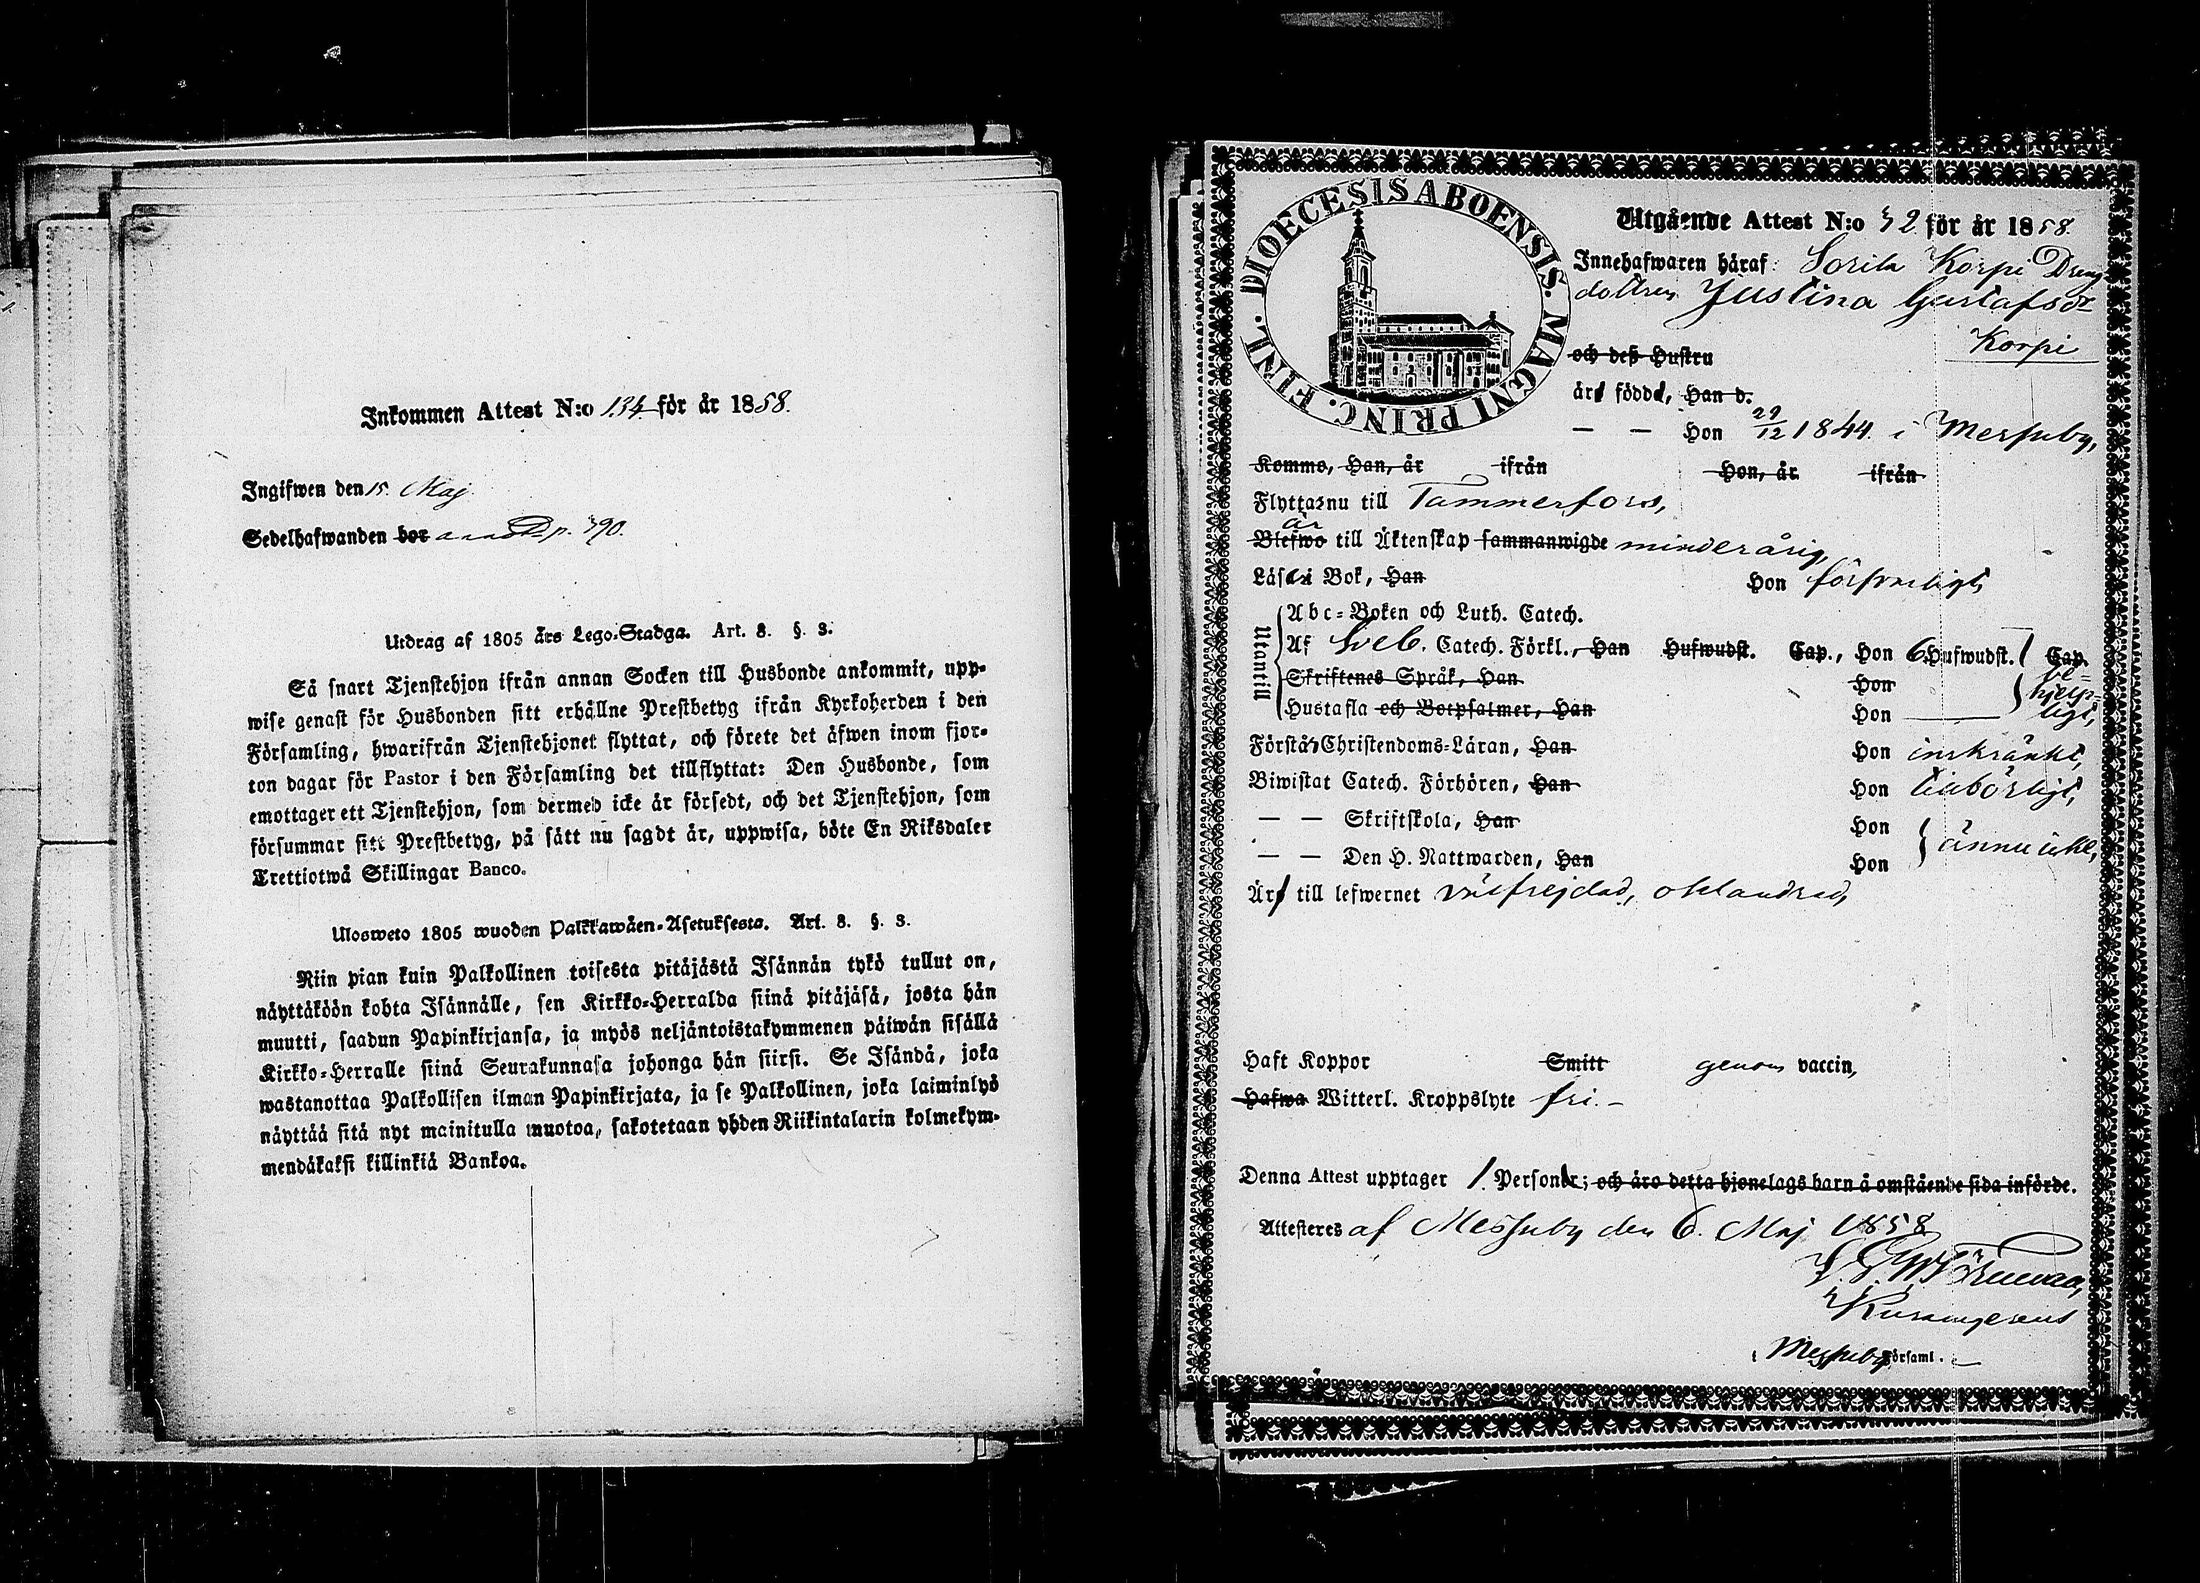 Inkommen Attest N:o 134 för år 1858.
Ingifwen den 15. Maj.
Sedelhafwanden bor p. 390.
Utdrag af 1805 års Lego-Stadga. Art. 8. §. 3.
Så snart Tjenstehjon ifrån annan Socken till Husbonde ankommit, upp-
wise genast för Husbonden sitt erhållne Prestbetyg ifrån Kyrkoherden i den
Församling, hwarifrån Tjenstehjonet flyttat, och förete det äfwen inom fjor-
ton dagar för Pastor i den Församling det tillflyttat: Den Husbonde, som
emottager ett Tjenstehjon, som dermed icke är försedt, och det Tjenstehjon, som
försummar sitt Prestbetyg, på sätt nu sagdt är, uppwisa, böte En Riksdaler
Trettiotwå Skillingar Banco.
Ulosweto 1805 wuoden Palkkawäen-Asetuksesta. Art. 8. §. 3.
Niin pian kuin Palkollinen toisesta pitäjästä Isännän tykö tullut on,
näyttäköön kohta Isännälle, sen Kirkko-Herralda siinä pitäjäsä, josta hän
muutti, saadun Papinkirjansa, ja myös neljäntoistakymmenen päiwän sisällä
Kirkko-Herralle siinä Seurakunnasa johonga hän siirsi. Se Isändä, joka
wastanottaa Palkollisen ilman Papinkirjata, ja se Palkollinen, joka laiminlyö
näyttää sitä nyt mainitulla muotoa, sakotetaan yhden Riikintalarin kolmekym-
mendäkaksi killinkiä Bankoa.
DIOECESIS ABOENSIS. MAGNI PRINC. FINL.
Utgående Attest N:o 32 för år 1858.
Innehafwaren häraf: Sorila Korpi Dreng
dottren Justina Gustafsdr
Korpi
och deß Hustru
är född, Han d.
— — Hon 29/12 1844. i Messuby,
Kommo, Han, år ifrån Hon, år ifrån
Flyttar nu till Tammerfors,
är
Blefwo till Äktenskap sammanwigde minderårig,
Läser i Bok, Han Hon försvarligt,
Utantill
Abc-Boken och Luth. Catech.
Af Sveb. Catech. Förkl., Han Hufwudst. Cap., Hon 6 Hufwudst. Cap.
Skriftenes Språk, Han Hon be-
hjelp-
Hustafla och Botpsalmer, Han Hon ligt,
Förstår Christendoms-Läran, Han Hon inskränkt,
Biwistat Catech. Förhören, Han Hon tillbörligt,
— — Skriftskola, Han Hon
ännu icke,
— — Den H. Nattwarden, Han Hon
Är till lefwernet välfrejdad, oklandrad,
Haft Koppor Smitt genom vaccin,
Hafwa Witterl. Kroppslyte fri. –
Denna Attest upptager 1. Person; och äro detta hjonelags barn å omstående sida införde.
Attesteres af Messuby den 6. Maj 1858
i Messuby Församl. –